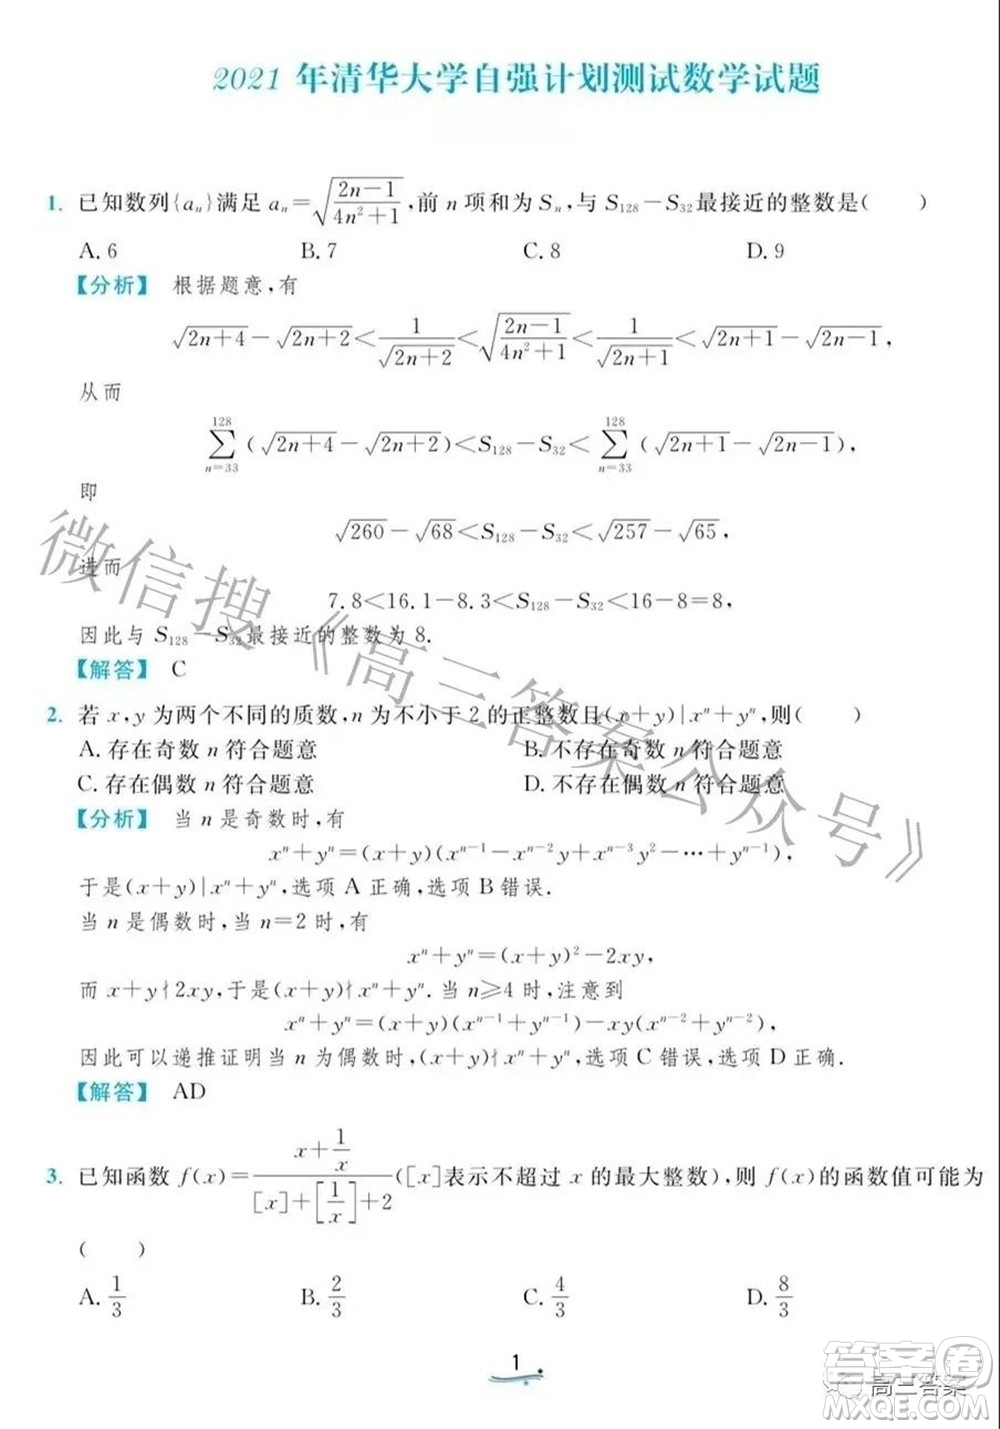 2021 年清华大学自强计划测试数学试题
1. 已知数列{aₙ}满足 aₙ=√((2n−1)/(4n²+1)),前 n 项和为 Sₙ,与 S₁₂₈−S₃₂最接近的整数是(　　)
A. 6　B. 7　C. 8　D. 9
【分析】 根据题意,有
√(2n+4)−√(2n+2)<1/√(2n+2)<√((2n−1)/(4n²+1))<1/√(2n+1)<√(2n+1)−√(2n−1),
从而
∑_{n=33}^{128}(√(2n+4)−√(2n+2))<S₁₂₈−S₃₂<∑_{n=33}^{128}(√(2n+1)−√(2n−1)),
即
√260−√68<S₁₂₈−S₃₂<√257−√65,
进而
7.8<16.1−8.3<S₁₂₈−S₃₂<16−8=8,
因此与 S₁₂₈−S₃₂最接近的整数为 8.
【解答】 C
2. 若 x,y 为两个不同的质数,n 为不小于 2 的正整数且(x+y)|xⁿ+yⁿ,则(　　)
A. 存在奇数 n 符合题意　B. 不存在奇数 n 符合题意
C. 存在偶数 n 符合题意　D. 不存在偶数 n 符合题意
【分析】 当 n 是奇数时,有
xⁿ+yⁿ=(x+y)(xⁿ⁻¹−xⁿ⁻²y+xⁿ⁻³y²−⋯+yⁿ⁻¹),
于是(x+y)|xⁿ+yⁿ,选项 A 正确,选项 B 错误.
当 n 是偶数时,当 n=2 时,有
xⁿ+yⁿ=(x+y)²−2xy,
而 x+y∤2xy,于是(x+y)∤xⁿ+yⁿ.当 n≥4 时,注意到
xⁿ+yⁿ=(x+y)(xⁿ⁻¹+yⁿ⁻¹)−xy(xⁿ⁻²+yⁿ⁻²),
因此可以递推证明当 n 为偶数时,(x+y)∤xⁿ+yⁿ,选项 C 错误,选项 D 正确.
【解答】 AD
3. 已知函数 f(x)=(x+1/x)/([x]+[1/x]+2)([x]表示不超过 x 的最大整数),则 f(x)的函数值可能为
(　　)
A. 1/3　B. 2/3　C. 4/3　D. 8/3
1
微信搜《高三答案公众号》
高三答案
答案卷
MXQE.COM